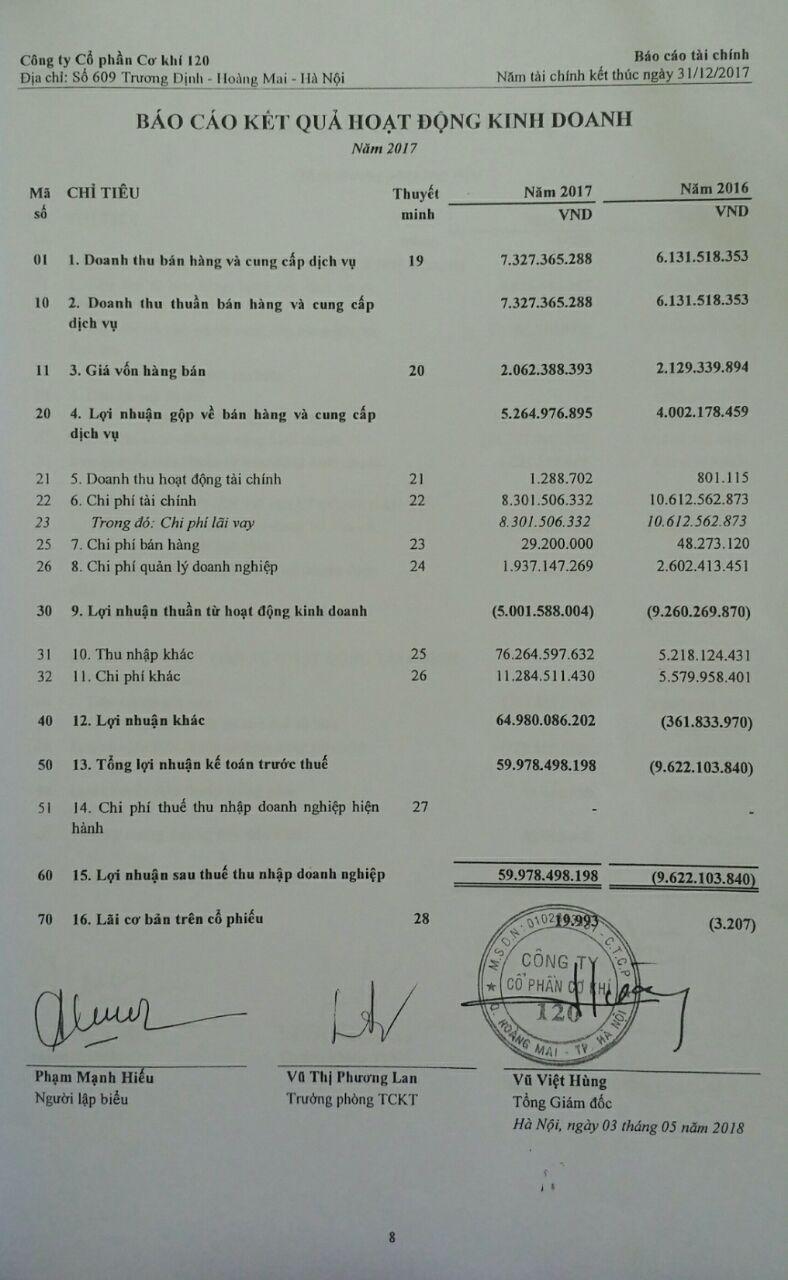 Công ty Cổ phần Cơ khí 120 Báo cáo tài chính
Địa chỉ: Số 609 Trương Định - Hoàng Mai - Hà Nội Năm tài chính kết thúc ngày 31/12/2017
BÁO CÁO KẾT QUẢ HOẠT ĐỘNG KINH DOANH
Năm 2017
Mã CHỈ TIÊU Thuyết Năm 2017 Năm 2016
số minh VND VND
01 1. Doanh thu bán hàng và cung cấp dịch vụ 19 7.327.365.288 6.131.518.353
10 2. Doanh thu thuần bán hàng và cung cấp 7.327.365.288 6.131.518.353
dịch vụ
11 3. Giá vốn hàng bán 20 2.062.388.393 2.129.339.894
20 4. Lợi nhuận gộp về bán hàng và cung cấp 5.264.976.895 4.002.178.459
dịch vụ
21 5. Doanh thu hoạt động tài chính 21 1.288.702 801.115
22 6. Chi phí tài chính 22 8.301.506.332 10.612.562.873
23 Trong đó: Chi phí lãi vay 8.301.506.332 10.612.562.873
25 7. Chi phí bán hàng 23 29.200.000 48.273.120
26 8. Chi phí quản lý doanh nghiệp 24 1.937.147.269 2.602.413.451
30 9. Lợi nhuận thuần từ hoạt động kinh doanh (5.001.588.004) (9.260.269.870)
31 10. Thu nhập khác 25 76.264.597.632 5.218.124.431
32 11. Chi phí khác 26 11.284.511.430 5.579.958.401
40 12. Lợi nhuận khác 64.980.086.202 (361.833.970)
50 13. Tổng lợi nhuận kế toán trước thuế 59.978.498.198 (9.622.103.840)
51 14. Chi phí thuế thu nhập doanh nghiệp hiện 27 - -
hành
60 15. Lợi nhuận sau thuế thu nhập doanh nghiệp 59.978.498.198 (9.622.103.840)
70 16. Lãi cơ bản trên cổ phiếu 28 19.993 (3.207)
CÔNG TY
CỔ PHẦN CƠ KHÍ
120
HOÀNG MAI - TP. HÀ NỘI
Phạm Mạnh Hiếu Vũ Thị Phương Lan Vũ Việt Hùng
Người lập biểu Trưởng phòng TCKT Tổng Giám đốc
Hà Nội, ngày 03 tháng 05 năm 2018
8